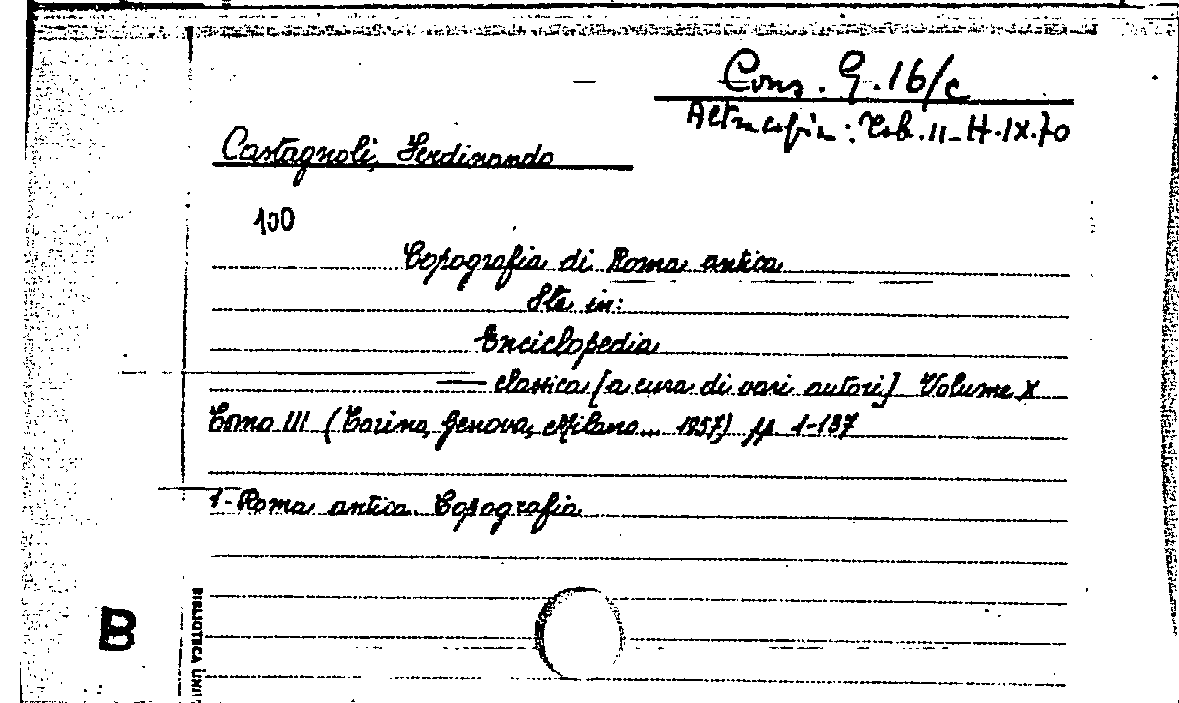 Cons. G. 16/c
Altra copia: Tob. II - H. IX. 70
Castagnoli, Ferdinando
100
Topografia di Roma antica
Sta in:
Enciclopedia
classica [a cura di vari autori] Volume X
Tomo III (Torino, Genova, Milano... 1957) pp 1-137
1- Roma antica. Topografia
B
BIBLIOTECA UNI